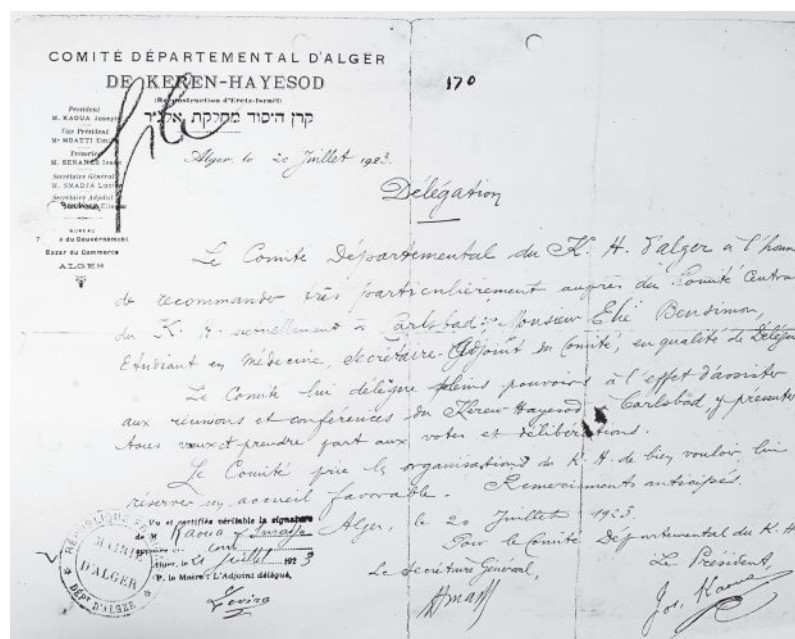 COMITÉ DÉPARTEMENTAL D'ALGER
DE KEREN-HAYESOD
(Reconstruction d'Eretz-Israël)
קרן היסוד מחלקת אלגיר
170
Président
M. KAOUA Joseph
Vice Président
Me MOATTI Emile
Trésorier
M. SENANES Isaac
Secrétaire Général
M. SMADJA Lucien
Secrétaire Adjoint
BUREAU
7 du Gouvernement
Bazar du Commerce
ALGER
Alger, le 20 Juillet 1923.
Délégation
Le Comité Départemental du K. H. d'alger a l'honn
de recommander très particulièrement auprès du Comité Centra
du K. H. actuellement à Carlsbad : Monsieur Elie Bensimon,
Etudiant en Médecine, Secrétaire-Adjoint du Comité, en qualité de Délégu
Le Comité lui délègue pleins pouvoirs à l'effet d'assister
aux réunions et conférences du Keren-Hayesod à Carlsbad, y présenter
tous vœux et prendre part aux votes et délibérations.
Le Comité prie les organisations du K. H. de bien vouloir lui
réserver un accueil favorable. Remerciements anticipés.
Alger, le 20 Juillet 1923.
Pour le Comité Départemental du K. H.
Le Secrétaire Général,
Le Président,
Jos. Kaoua
Vu et certifiée véritable la signature
de M Kaoua & Smadja
Alger, le 21 Juillet 1923
P. le Maire : L'Adjoint délégué,
RÉPUBLIQUE
MAIRIE
D'ALGER
DÉPT D'ALGER